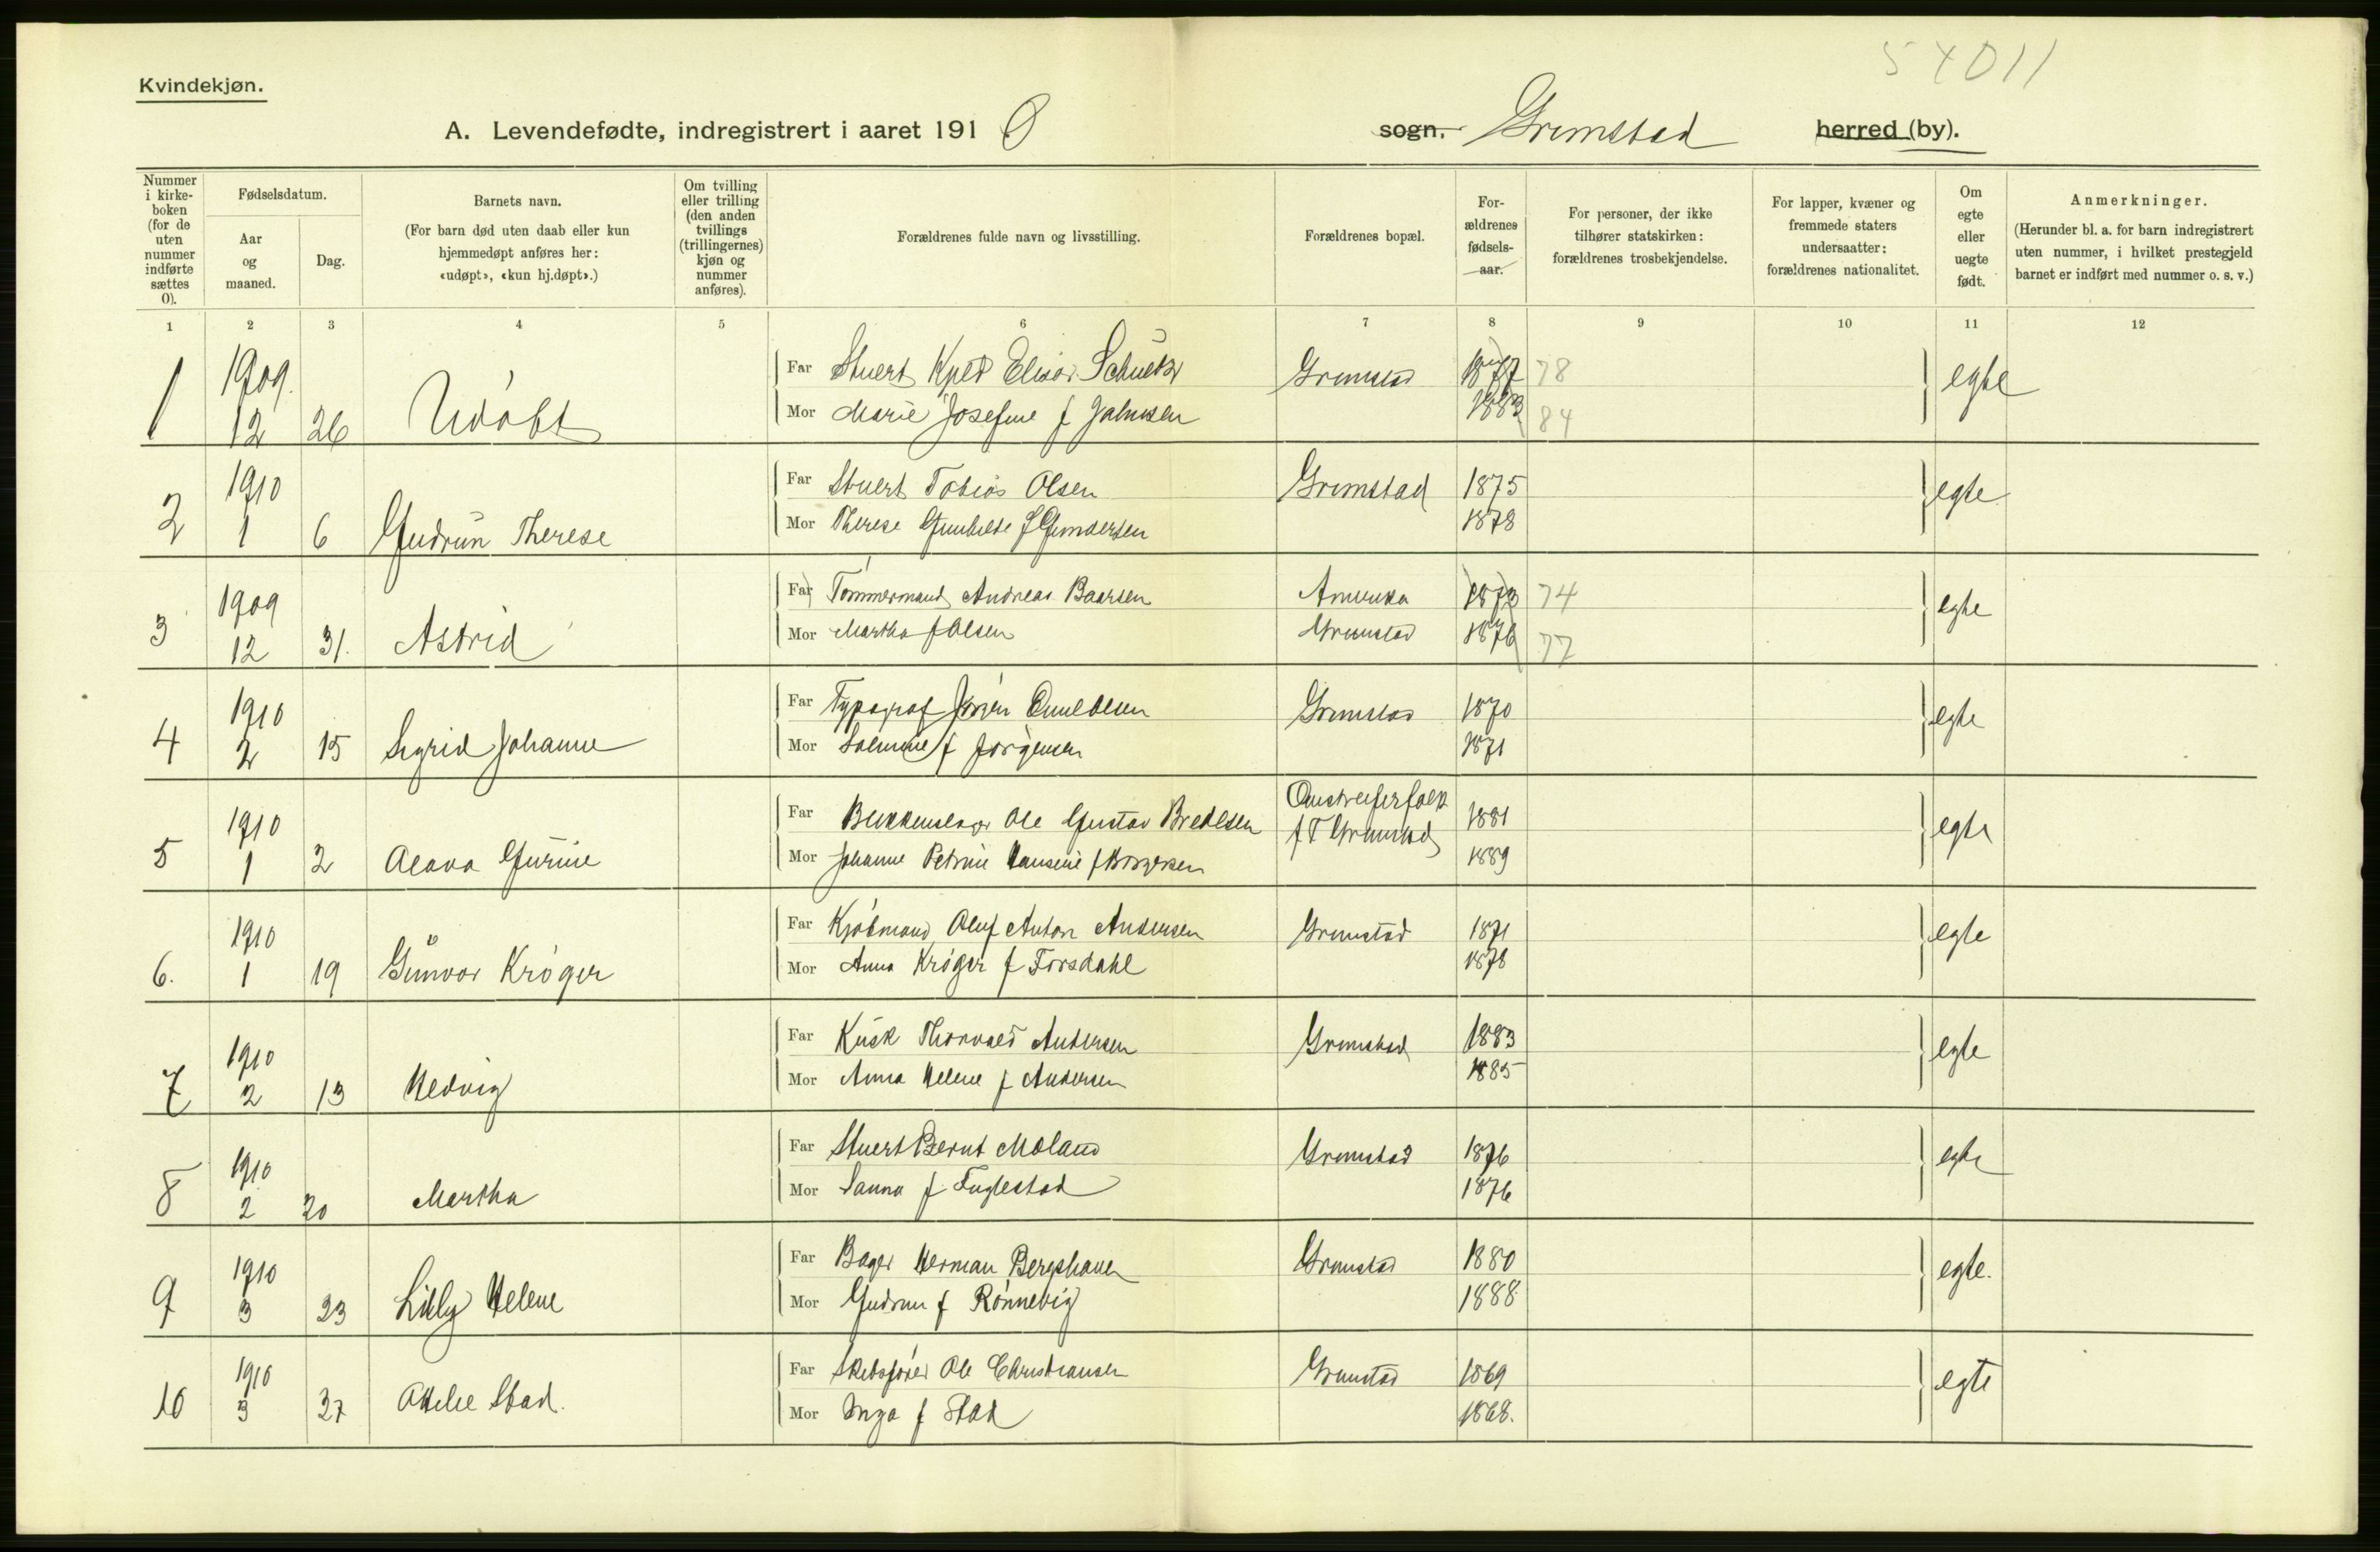 54011
Kvindekjøn.
A. Levendefødte, indregistrert i aaret 1910 sogn. Grimstad herred (by).
Nummer i kirkeboken (for de uten nummer indførte sættes 0).
Fødselsdatum.
Aar og maaned.
Dag.
Barnets navn.
(For barn død uten daab eller kun hjemmedøpt anføres her: «udøpt», «kun hj.døpt».)
Om tvilling eller trilling (den anden tvillings (trillingernes) kjøn og nummer anføres).
Forældrenes fulde navn og livsstilling.
Forældrenes bopæl.
Forældrenes fødsels-aar.
For personer, der ikke tilhører statskirken: forældrenes trosbekjendelse.
For lapper, kvæner og fremmede staters undersaatter: forældrenes nationalitet.
Om egte eller uegte født.
Anmerkninger.
(Herunder bl. a. for barn indregistrert uten nummer, i hvilket prestegjeld barnet er indført med nummer o. s. v.)
1 2 3 4 5 6 7 8 9 10 11 12
1 1909. 12 26 Udöbt
Far Stuert Elias Schultz Grimstad 1877 78 egte
Mor Marie Josefine f 1883 84
2 1910 1 6 Gudrun Therese
Far Stuert Tobias Olsen Grimstad 1875 egte
Mor Therese Gunhilde f Gundersen 1878
3 1909 12 31. Astrid
Far Tömmermand Andreas Baarsen Amerika 1873 74 egte
Mor Martha f Olsen Grimstad 1876 77
4 1910 2 15 Sigrid Johanne
Far Typograf Jörgen Grimstad 1870 egte
Mor f Jörgensen 1871
5 1910 1 2 Gurine
Far Ole Gustav Bredesen Omstreiferfolk f T Grimstad 1881 egte
Mor Johanne Petrine Hansine f 1889
6. 1910 1 19 Gunvor Kröger
Far Kjöbmand Oluf Anton Andersen Grimstad 1871 egte
Mor Anna Kröger f Forsdahl 1878
7 1910 2 13 Hedvig
Far Kusk Thorvald Andersen Grimstad 1883 egte
Mor Anna Helene f Andersen 1885
8 1910 2 20 Martha
Far Stuert Bernt Moland Grimstad 1876 egte
Mor Sanna f Fuglestad 1876
9 1910 3 23 Lilly Helene
Far Bager Herman Bergshaven Grimstad 1880 egte.
Mor Gudrun f Rönnevig 1888
10 1910 3 27 Stad.
Far Skibsförer Ole Christiansen Grimstad 1869 egte
Mor Inga f Stad 1868.